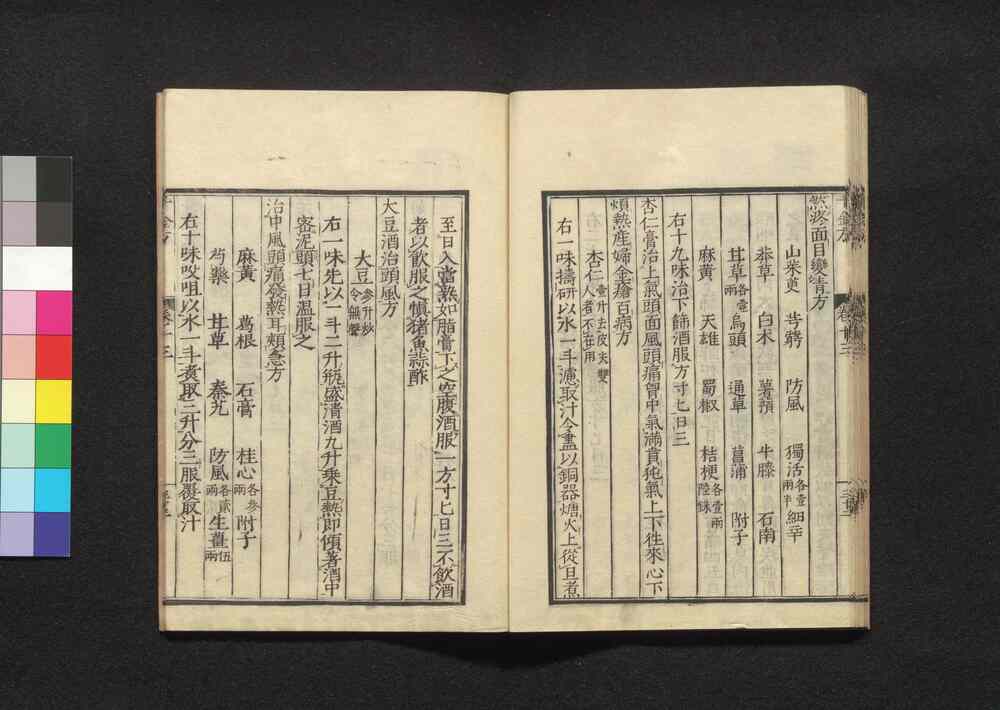 然疼面目變青方
山茱萸 芎藭 防風 獨活各壹兩半 細辛
莽草 白朮 薯預 牛膝 石南
甘草各壹兩 烏頭 通草 菖蒲 附子
麻黃 天雄 蜀椒 桔梗各壹兩陸銖
右十九味治下篩酒服方寸匕日三
杏仁膏治上氣頭面風頭痛胷中氣滿賁㹠氣上下往來心下
煩熱産婦金瘡百病方
杏仁壹升去皮尖雙人者不在用
右一味擣研以水一斗濾取汁令盡以銅器煻火上從旦煮
至日入當熟如脂膏下之空腹酒服一方寸匕日三不飮酒
者以飮服之愼猪魚蒜酢
大豆酒治頭風方
大豆參升炒令無聲
右一味先以一斗二升甁盛清酒九升乘豆熱即傾著酒中
密泥頭七日温服之
治中風頭痛發熱耳頰急方
麻黃 葛根 石膏 桂心各參兩 附子
芍藥 甘草 秦艽 防風各貳兩 生薑伍兩
右十味㕮咀以水一斗煑取三升分三服覆取汁